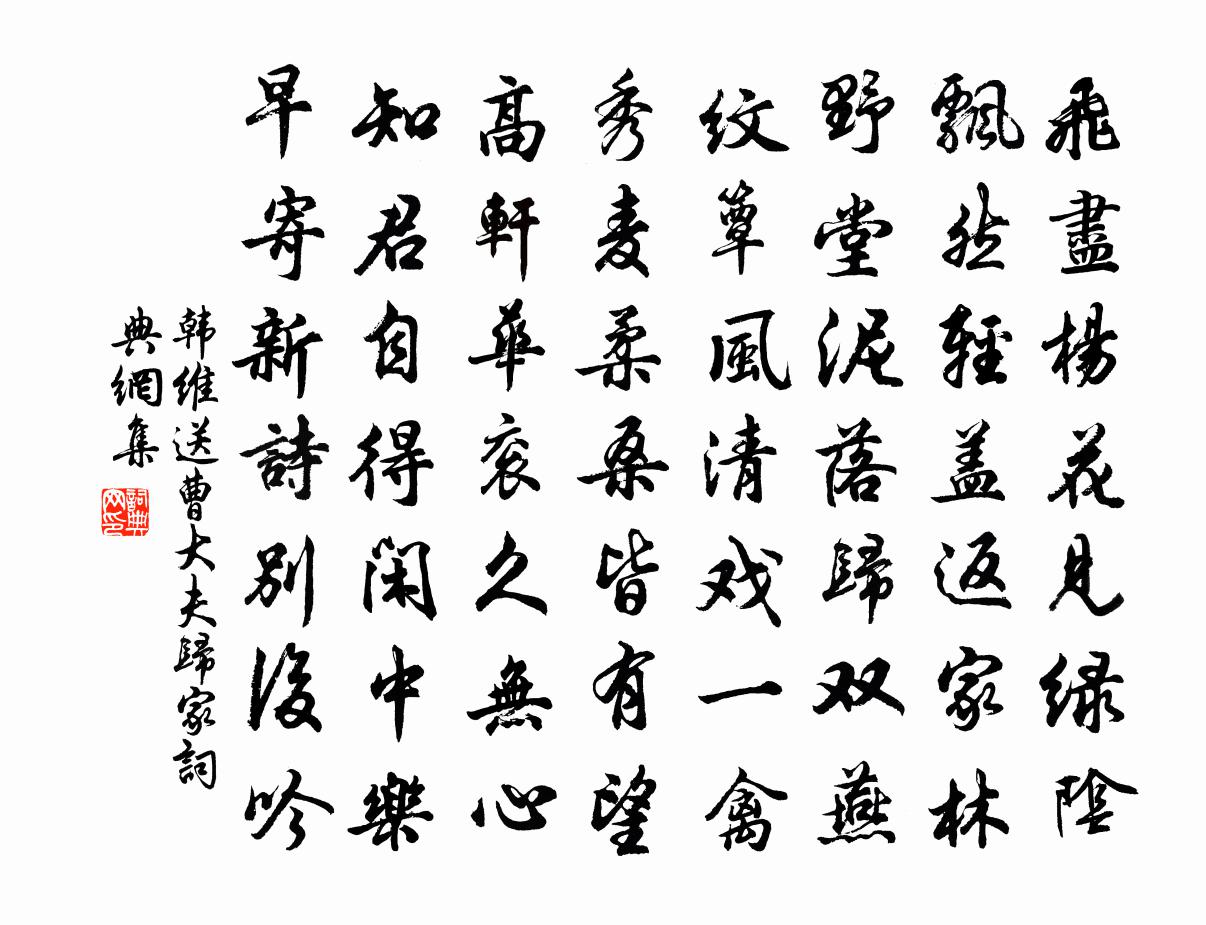 飛盡楊花見緑陰
飄然輕盖返家林
野堂泥落歸双燕
紋簟風清戏一禽
秀麦柔桑皆有望
髙軒華衮久無心
知君自得閑中樂
早寄新詩別後吟
韩維送曹大夫歸家詞
典網集
詞典网印